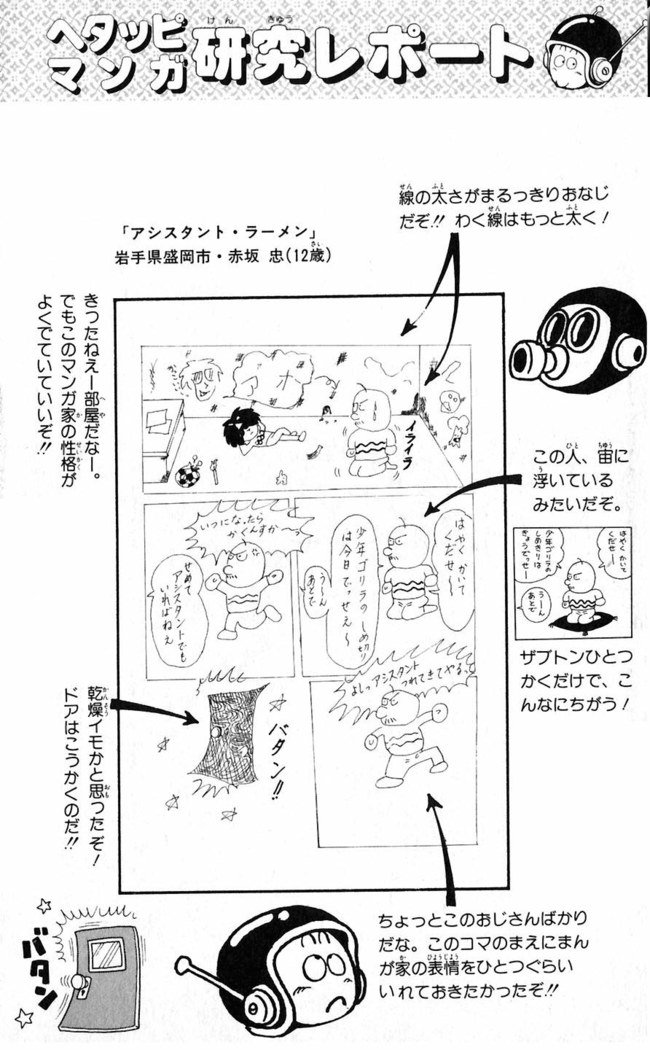 ヘタッピ
マンガ
研究レポート
けん
きゅう
線の太さがまるっきりおなじ
だぞ!! わく線はもっと太く!
せん
ふと
せん
ふと
「アシスタント・ラーメン」
岩手県盛岡市・赤坂 忠(12歳)
さい
きったねえー部屋だなー。
でもこのマンガ家の性格が
よくでていていいぞ!!
へや
か
せいかく
アホ
イライラ
この人、宙に
浮いている
みたいだぞ。
ひと
ちゅう
う
はやくかいて
くだせー
少年ゴリラの
しめきりは
きょうでっせー
うーん
あとで
ザブトンひとつ
かくだけで、こ
んなにちがう!
はやくかいて
くだせ〜
少年ゴリラのしめ切り
は今日でっせえ〜
うーん
あとで
いつになったら
かくんすか〜っ
せめて
アシスタントでも
いればねえ
よしっアシスタント
つれてきてやるっ
バタン!!
乾燥イモかと思ったぞ!
ドアはこうかくのだ!!
かんそう
おも
バタン
ちょっとこのおじさんばかり
だな。このコマのまえにまん
が家の表情をひとつぐらい
いれておきたかったぞ!!
か
ひょうじょう